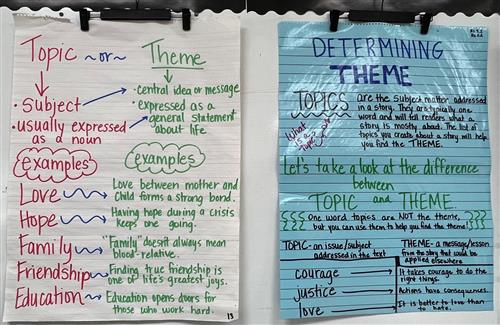 Topic ~or~ Theme
• Subject
• usually expressed
as a noun
• central idea or message
• expressed as a
general statement
about life.
examples
examples
Love
Love between mother and
Child forms a strong bond.
Hope
Having hope during a crisis
keeps one going.
Family
"Family" doesn't always mean
blood-relative.
Friendship
Finding true friendship is
one of life's greatest joys.
Education
Education opens doors for
those who work hard.
13
DETERMINING
THEME
TOPICS are the subject matter addressed
in a story. They are typically one
word and will tell readers what a
story is mostly about. The list of
topics you create about a story will help
you find the THEME.
What is a
Let's take a look at the difference
between
TOPIC and THEME.
One word topics are NOT the theme,
but you can use them to help you find the theme!
TOPIC- an issue/subject
addressed in the text
THEME- a message/lesson
from the story that could be
applied elsewhere
courage
It takes courage to do the
right things.
justice
Actions have consequences.
love
It is better to love than
to hate.